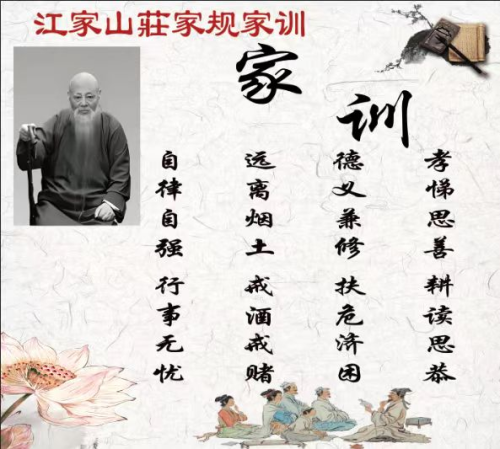 江家山莊家规家训
家训
孝悌思善 耕读思恭
德义兼修 扶危济困
远离烟土 戒酒戒赌
自律自强 行事无忧